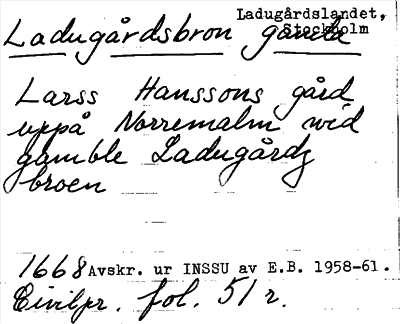 Ladugårdslandet,
Stockholm
Ladugårdsbron gamla
Larss Hanssons gård
uppå Norremalm wid
gamble Ladugårdz
broen
1668 Avskr. ur INSSU av E.B. 1958-61.
Civilpr. fol. 51 r.